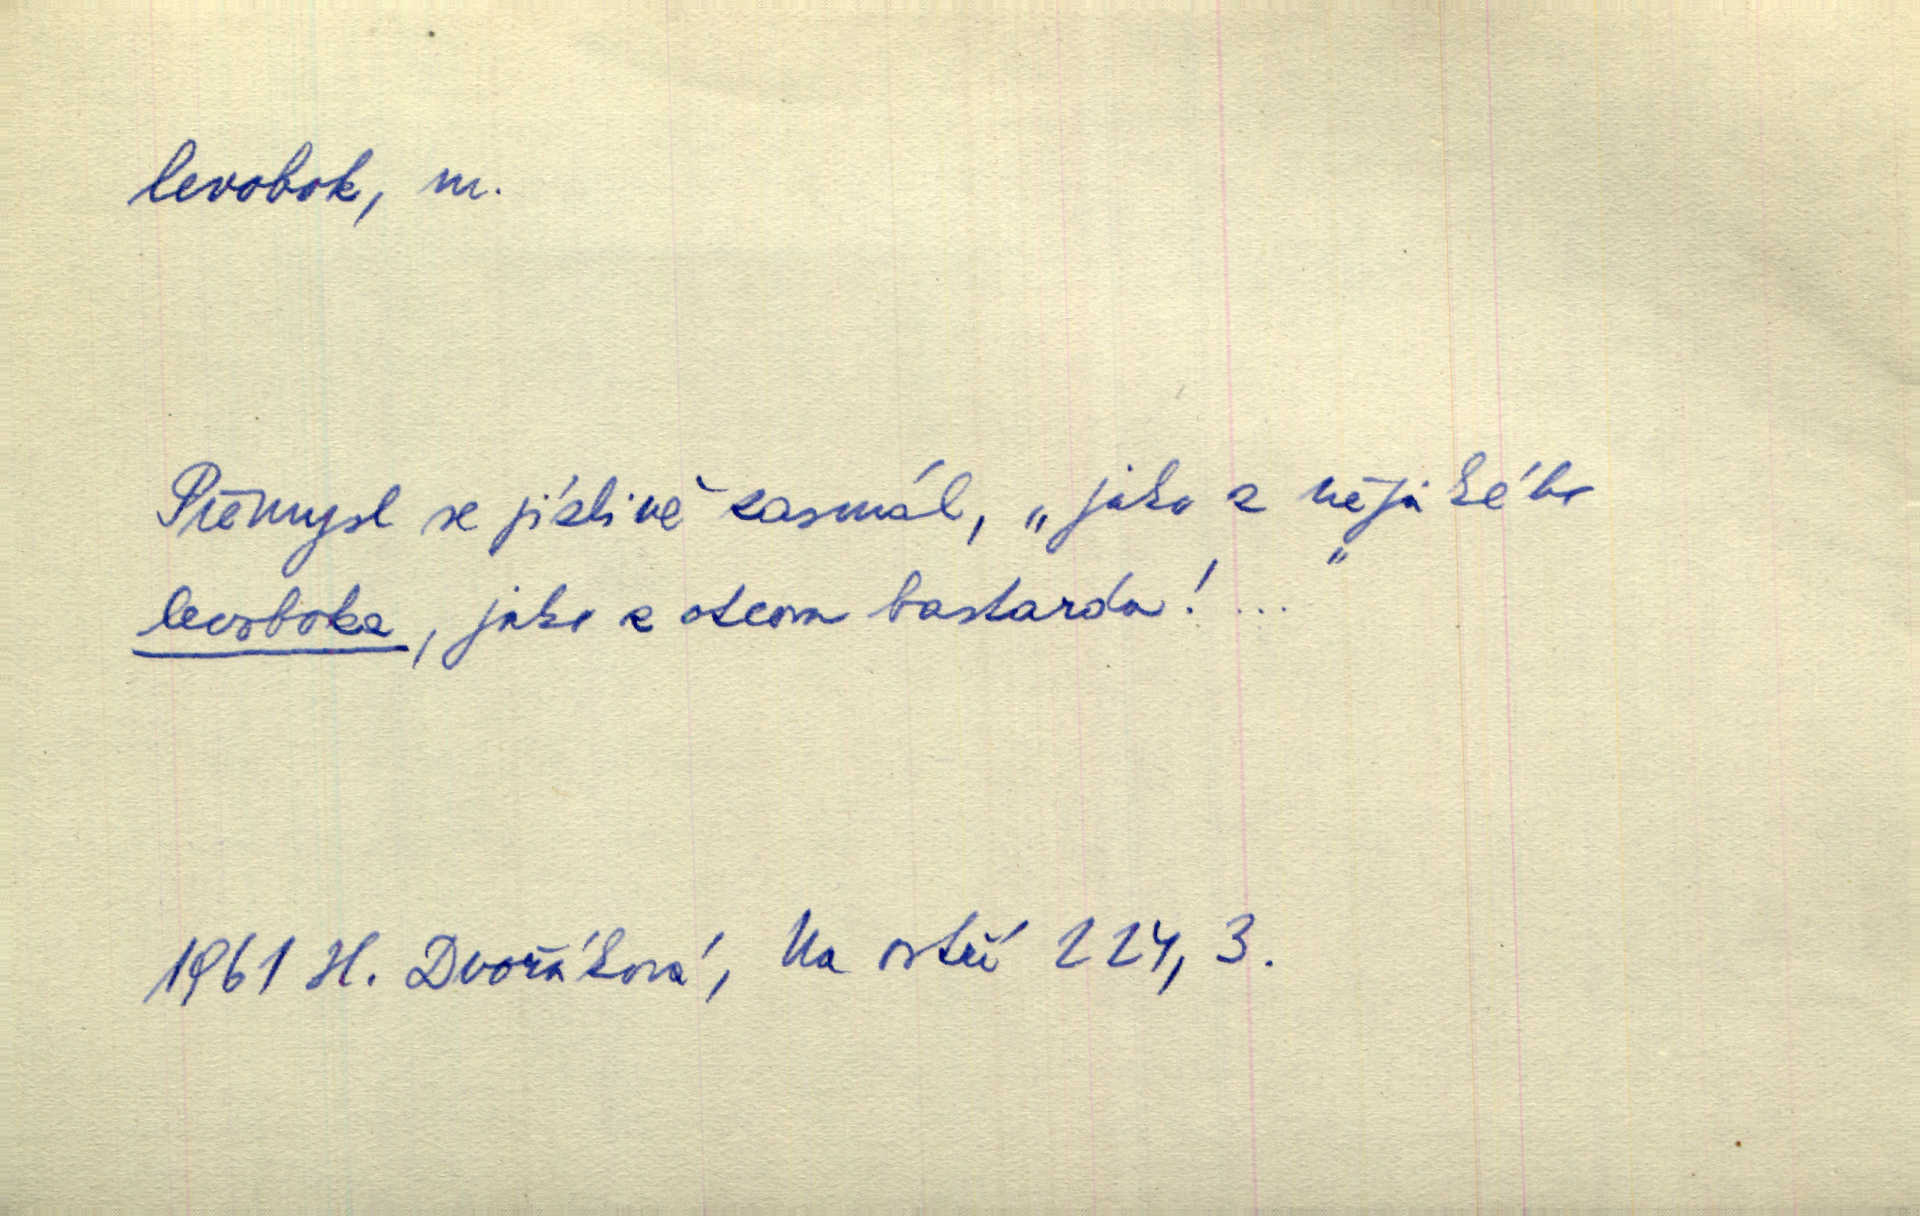 levobok, m.
Přemysl se jízlivě zasmál, „jako z nějakého
levoboka, jako z otcova bastarda! ..."
1961 H. Dvořáková, Na ostří 224, 3.